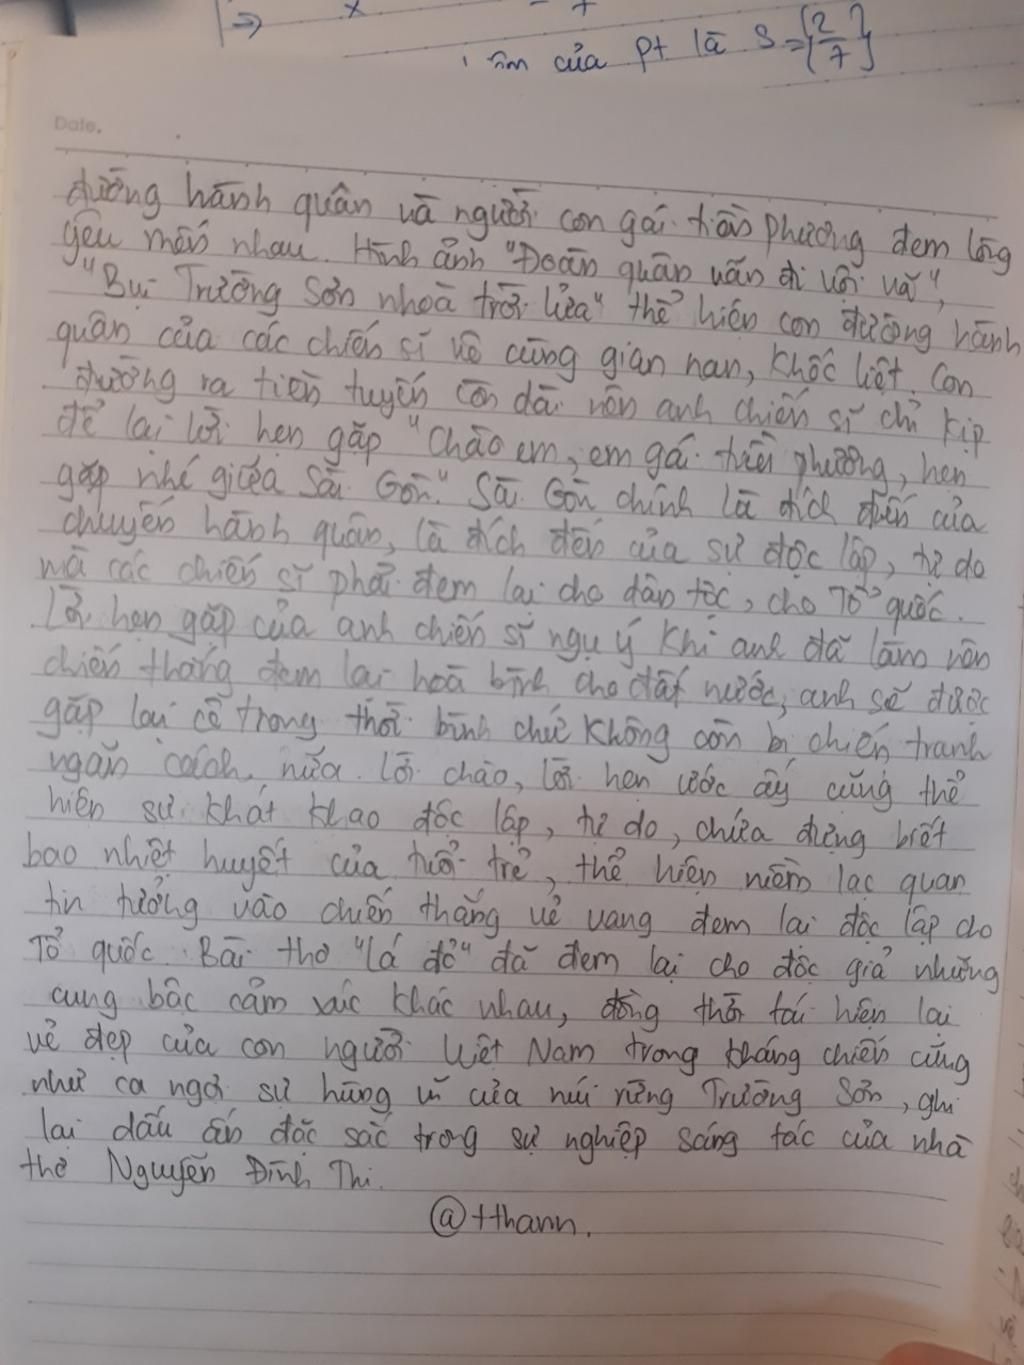 ⇒ x - +
của pt là S = {2/7}
Date.
đường hành quân và người con gái tiền phương đem lòng
yêu mến nhau. Hình ảnh "Đoàn quân vẫn đi vội vã",
"Bụi Trường Sơn nhoà trời lửa" thể hiện con đường hành
quân của các chiến sĩ vô cùng gian nan, khốc liệt. Con
đường ra tiền tuyến còn dài nên anh chiến sĩ chỉ kịp
để lại lời hẹn gặp "Chào em, em gái tiền phương, hẹn
gặp nhé giữa Sài Gòn." Sài Gòn chính là đích đến của
chuyến hành quân, là đích đến của sự độc lập, tự do
mà các chiến sĩ phải đem lại cho dân tộc, cho Tổ quốc.
Lời hẹn gặp của anh chiến sĩ ngụ ý khi anh đã làm nên
chiến thắng đem lại hoà bình cho đất nước, anh sẽ được
gặp lại cô trong thời bình chứ không còn bị chiến tranh
ngăn cách nữa. Lời chào, lời hẹn ước ấy cũng thể
hiện sự khát khao độc lập, tự do, chứa đựng biết
bao nhiệt huyết của tuổi trẻ, thể hiện niềm lạc quan
tin tưởng vào chiến thắng vẻ vang đem lại độc lập cho
Tổ quốc. Bài thơ "Lá đỏ" đã đem lại cho độc giả những
cung bậc cảm xúc khác nhau, đồng thời tái hiện lại
vẻ đẹp của con người Việt Nam trong kháng chiến cũng
như ca ngợi sự hùng vĩ của núi rừng Trường Sơn, ghi
lại dấu ấn đặc sắc trong sự nghiệp sáng tác của nhà
thơ Nguyễn Đình Thi.
@tthann.